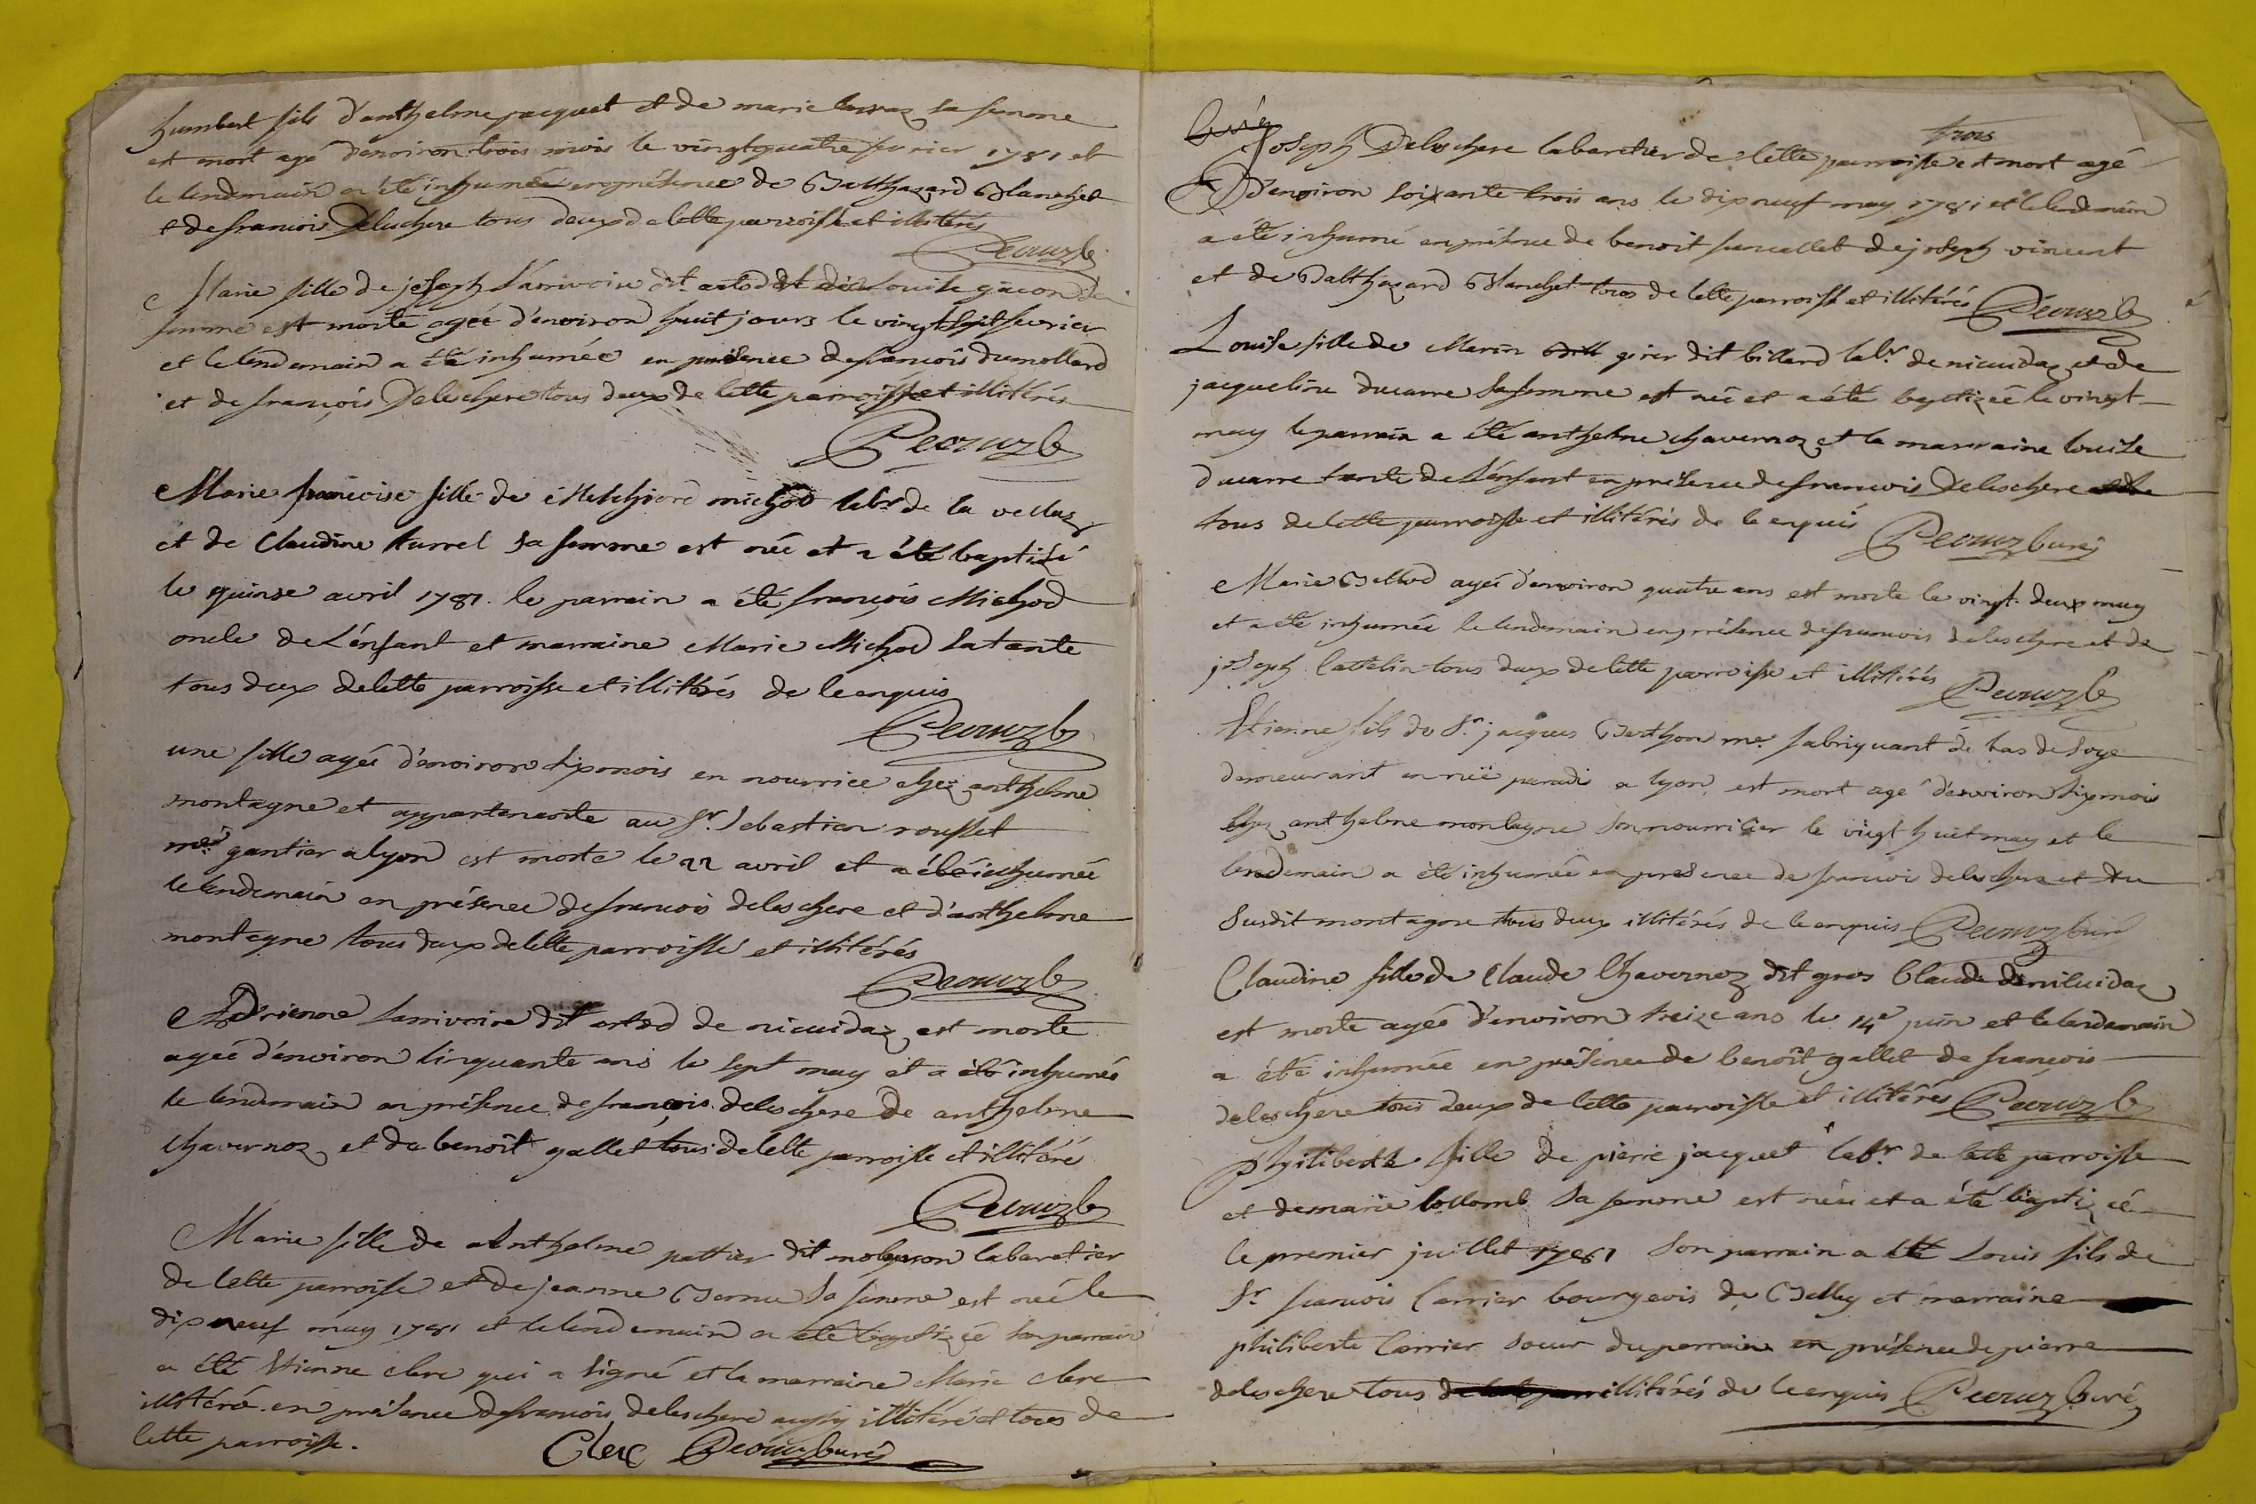 humbert fils d'anthelme jacquet et de marie sa femme
est mort agé d'environ trois mois le vingtquatre fevrier 1781 et
le lendemain a été inhumé en présence de Balthazard Blanchet
et de francois Deleschere tous deux de cette parroisse et illiterés
Peouuz c
Marie fille de joseph Larrivoire dit et de Louise gacon sa
femme est morte agée d'environ huit jours le vingt sept fevrier
et le lendemain a été inhumée en présence de francois dumollard
et de françois Deleschere tous deux de cette parroisse et illitérés
Peouuz c
Marie francoise fille de Melchiore michod labr. de la vellaz
et de Claudine hurrel sa femme est née et a été baptisé
le quinze avril 1781. le parrain a été françois Michod
oncle de L'énfant et marraine Marie Michod sa tante
tous deux de cette parroisse et illitérés de ce enquis
Peouuz c
une fille agée d'énviron six mois en nourrice chez anthelme
montagne et appartenante au Sr. Sebastien rousset
me. gantier a lyon est morte le 22 avril et a été inhumée
le lendemain en présence de francois deleschere et d'anthelme
montagne tous deux de cette parroisse et illitérés
Peouuz c
Adrienne Larrivoire dit de nicuidaz est morte
agée d'énviron cinquante ans le sept may et a été inhumée
le lendemain en présence de françois deleschere de anthelme
chavernoz et de benoît gallet tous de cette parroisse et illitéré
Peouuz c
Marie fille de Anthelme pattier dit cabaretier
de cette parroisse et de jeanne Bernu sa femme est née le
dixneuf may 1781 et le lendemain a été baptizée son parrain
a été Etienne clerc qui a signé et la marraine Marie clerc
illitérée en présence de francois deleschere aussy illitéré et tous de
cette parroisse. Clerc Peouuz curé
Joseph Deleschere cabaretier de cette parroisse est mort agé
trois
d'environ soixante trois ans le dixneuf may 1781 et le lendemain
a été inhumé en présence de benoit de joseph vincent
et de Balthazard Blanchet tous de cette parroisse et illitérés Péouuz c
Louise fille de Marin girer dit billard labr. de nicuidaz et de
jacqueline ducarre sa femme est née et a été baptizée le vingt
may le parrain a été anthelme chavernoz et la marraine louise
ducarre tante de L'énfant en présence de francois Deleschere
tous de cette parroisse et illitérés de ce enquis Peouuz curé
Marie Bellod agée d'environ quatre ans est morte le vingt deux may
et a été inhumée le lendemain en présence de francois deleschere et de
joseph cattelin tous deux de cette parroisse et illitérés Peouuz c
Etienne fils de Sr. jacques Berthon me. fabriquant de bas de soye
demeurant en rüe paradis a lyon, est mort agé d'énviron six mois
chez anthelme montagne son nourricier le vingt huit may et le
lendemain a été inhumé en presence de francois deleschere et du
susdit montagne tous deux illitérés de ce enquis Peouuz curé
Claudine fille de Claude Chavernoz dit gros Claude de nicuidaz
est morte agée d'environ treize ans le 14e juin et le lendemain
a été inhumée en présence de benoît gallet de françois
deleschere tous deux de cette parroisse et illitérés Peouuz c
philiberte fille de pierre jacquet labr. de cette parroisse
et de marie collomb sa femme est née et a été baptizée
le premier juillet 1781 son parrain a été Louis fils de
Sr. francois Carrier bourgeois de Belley et marraine
philiberte Carrier soeur du parrain en présence de pierre
deleschere tous illitérés de ce enquis Peouuz curé